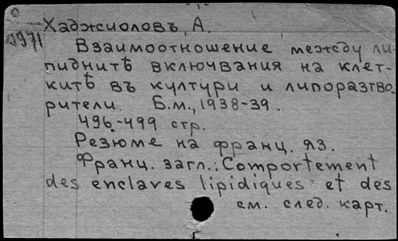 Хаджиоловъ, А.
Взаимоотношение между ли-
пиднитѣ включвания на клет-
китѣ въ култури и липоразтво-
рители. Б.м., 1938-39.
496-499 стр.
Резюме на франц. яз.
Франц. загл.: Comportement
des enclaves lipidiques et des
см. след. карт.